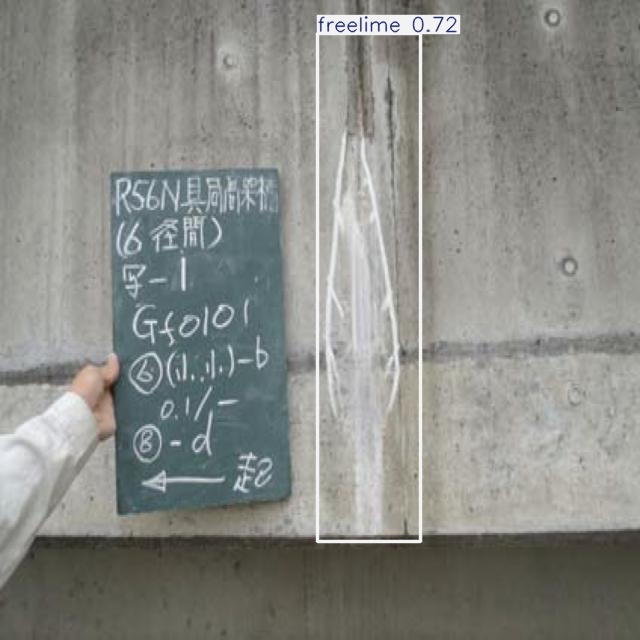 freelime 0.72
R56N具同高架橋
(6径間)
写-1
Gf0101
⑥(小.小)-b
0.1/-
⑧-d
起